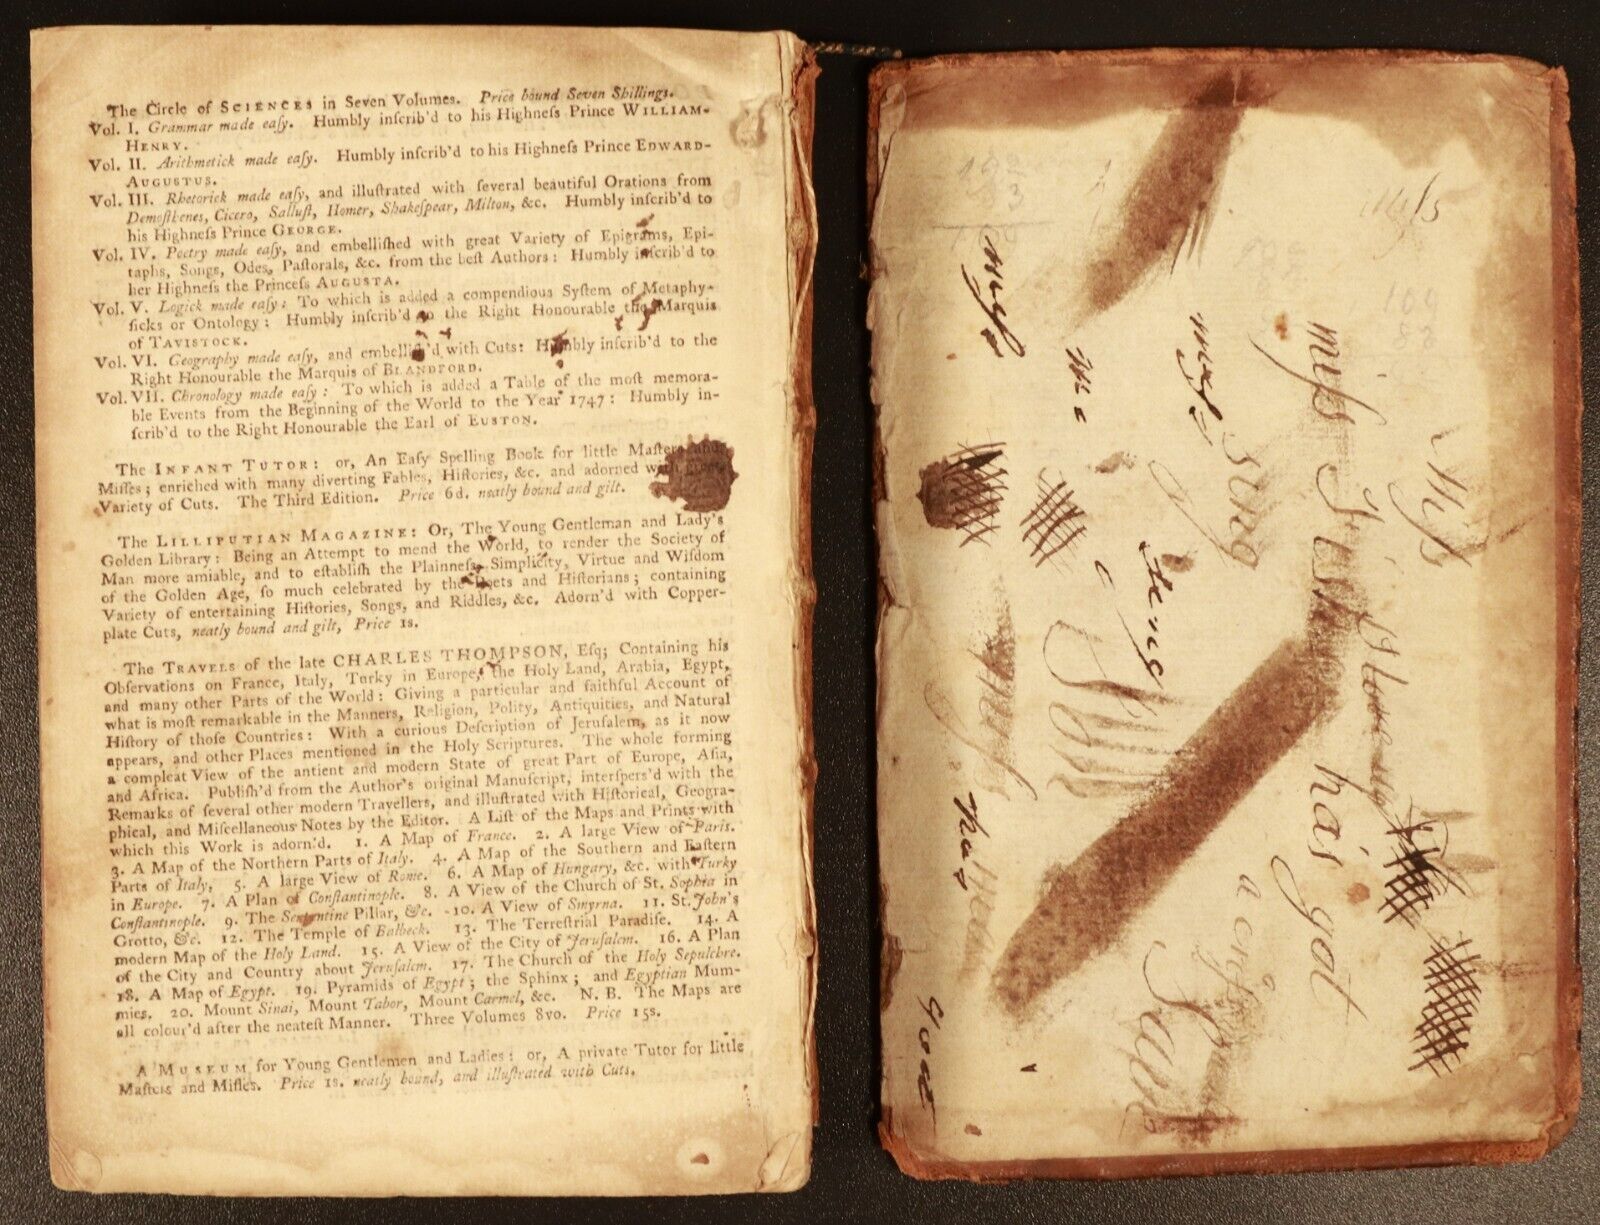 The Circle of SCIENCES in Seven Volumes. Price bound Seven Shillings.
Vol. I. Grammar made eaſy. Humbly inſcrib'd to his Highneſs Prince WILLIAM-
HENRY.
Vol. II. Arithmetick made eaſy. Humbly inſcrib'd to his Highneſs Prince EDWARD-
AUGUSTUS.
Vol. III. Rhetorick made eaſy, and illuſtrated with ſeveral beautiful Orations from
Demoſthenes, Cicero, Salluſt, Homer, Shakeſpear, Milton, &c. Humbly inſcrib'd to
his Highneſs Prince GEORGE.
Vol. IV. Poetry made eaſy, and embelliſhed with great Variety of Epigrams, Epi-
taphs, Songs, Odes, Paſtorals, &c. from the beſt Authors: Humbly inſcrib'd to
her Highneſs the Princeſs AUGUSTA.
Vol. V. Logick made eaſy: To which is added a compendious Syſtem of Metaphy-
ſicks or Ontology: Humbly inſcrib'd to the Right Honourable the Marquis
of TAVISTOCK.
Vol. VI. Geography made eaſy, and embelliſh'd with Cuts: Humbly inſcrib'd to the
Right Honourable the Marquis of BLANDFORD.
Vol. VII. Chronology made eaſy: To which is added a Table of the moſt memora-
ble Events from the Beginning of the World to the Year 1747: Humbly in-
ſcrib'd to the Right Honourable the Earl of EUSTON.
The INFANT TUTOR: or, An Eaſy Spelling Book for little Maſters and
Miſſes; enriched with many diverting Fables, Hiſtories, &c. and adorned with great
Variety of Cuts. The Third Edition. Price 6d. neatly bound and gilt.
The LILLIPUTIAN MAGAZINE: Or, The Young Gentleman and Lady's
Golden Library: Being an Attempt to mend the World, to render the Society of
Man more amiable, and to eſtabliſh the Plainneſs, Simplicity, Virtue and Wiſdom
of the Golden Age, ſo much celebrated by the Poets and Hiſtorians; containing
Variety of entertaining Hiſtories, Songs, and Riddles, &c. Adorn'd with Copper-
plate Cuts, neatly bound and gilt, Price 1s.
The TRAVELS of the late CHARLES THOMPSON, Eſq; Containing his
Obſervations on France, Italy, Turky in Europe, the Holy Land, Arabia, Egypt,
and many other Parts of the World: Giving a particular and faithful Account of
what is moſt remarkable in the Manners, Religion, Polity, Antiquities, and Natural
Hiſtory of thoſe Countries: With a curious Deſcription of Jeruſalem, as it now
appears, and other Places mentioned in the Holy Scriptures. The whole forming
a compleat View of the antient and modern State of great Part of Europe, Aſia,
and Africa. Publiſh'd from the Author's original Manuſcript, interſpers'd with the
Remarks of ſeveral other modern Travellers, and illuſtrated with Hiſtorical, Geogra-
phical, and Miſcellaneous Notes by the Editor. A Liſt of the Maps and Prints with
which this Work is adorn'd. 1. A Map of France. 2. A large View of Paris.
3. A Map of the Northern Parts of Italy. 4. A Map of the Southern and Eaſtern
Parts of Italy, 5. A large View of Rome. 6. A Map of Hungary, &c. with Turky
in Europe. 7. A Plan of Conſtantinople. 8. A View of the Church of St. Sophia in
Conſtantinople. 9. The Serpentine Pillar, &c. 10. A View of Smyrna. 11. St. John's
Grotto, &c. 12. The Temple of Balbeck. 13. The Terreſtrial Paradiſe. 14. A
modern Map of the Holy Land. 15. A View of the City of Jeruſalem. 16. A Plan
of the City and Country about Jeruſalem. 17. The Church of the Holy Sepulchre.
18. A Map of Egypt. 19. Pyramids of Egypt; the Sphinx; and Egyptian Mum-
mies. 20. Mount Sinai, Mount Tabor, Mount Carmel, &c. N. B. The Maps are
all colour'd after the neateſt Manner. Three Volumes 8vo. Price 15s.
A MUSEUM for Young Gentlemen and Ladies: or, A private Tutor for little
Maſters and Miſſes. Price 1s. neatly bound, and illuſtrated with Cuts.
Miſs
miſs has got
a
ſing